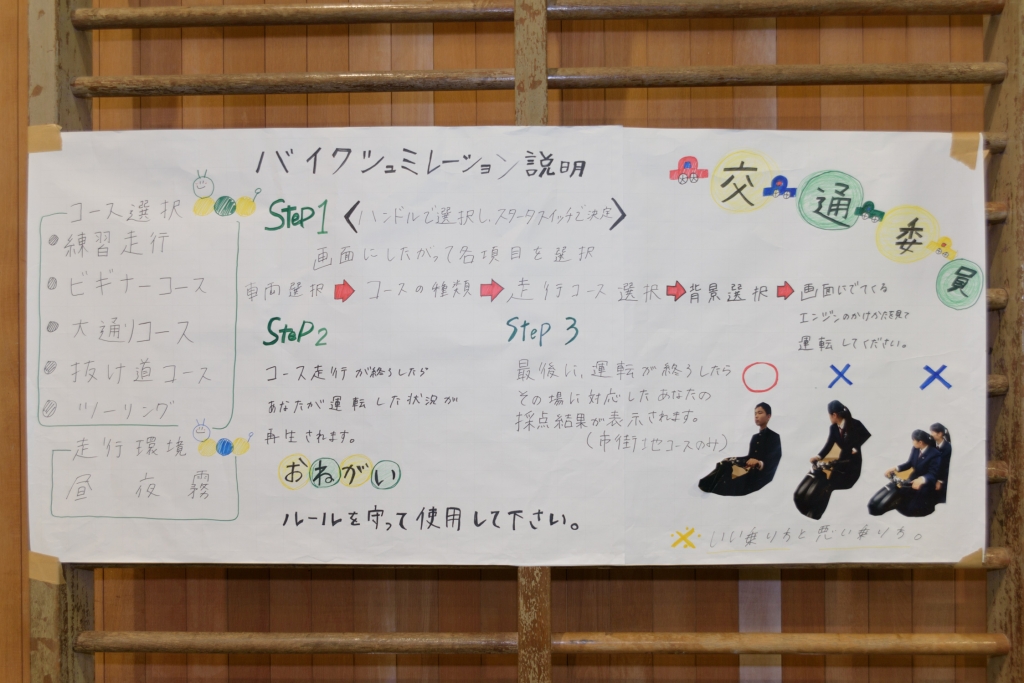 バイクシュミレーション説明
交通委員
コース選択
練習走行
ビギナーコース
大通りコース
抜け道コース
ツーリング
走行環境
昼 夜 霧
Step1 〈ハンドルで選択し、スタータスイッチで決定〉
画面にしたがって各項目を選択
車両選択➡コースの種類➡走行コース選択➡背景選択➡画面にでてくる
エンジンのかけかたを見て
運転してください。
Step2
コース走行が終了したら
あなたが運転した状況が
再生されます。
Step 3
最後に、運転が終了したら
その場に対応したあなたの
採点結果が表示されます。
(市街地コースのみ)
○ × ×
おねがい
ルールを守って使用して下さい。
※いい乗り方と悪い乗り方。